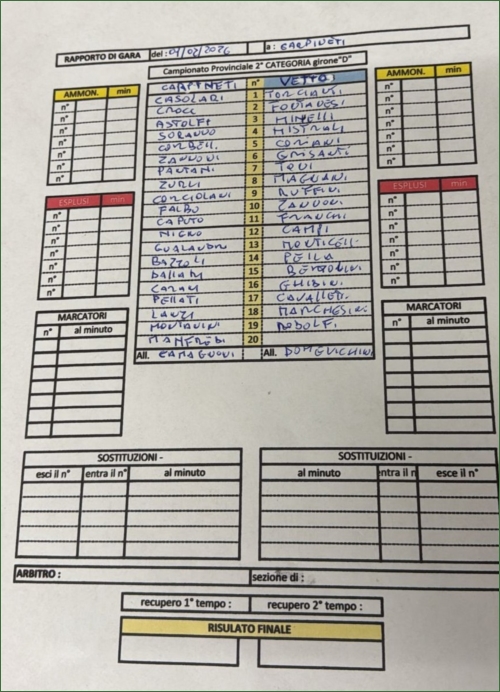 RAPPORTO DI GARA del : 01/02/2026 a : CARPINETI
Campionato Provinciale 2° CATEGORIA girone"D"
AMMON. min
n°
n°
n°
n°
n°
n°
n°
ESPLUSI min
n°
n°
n°
n°
n°
n°
n°
MARCATORI
n° al minuto
CARPINETI n° VETTO
CASOLARI 1 TORCIANTI
CROCI 2 FONTANESI
ASTOLFI 3 MINELLI
SORANNO 4 MISTRALI
CORBELLI 5 CORIANI
ZANNONI 6 GRISANTI
PANTANI 7 TONI
ZURLI 8 MAGNANI
CORCIOLANI 9 RUFFINI
FALBO 10 ZANNONI
CAPUTO 11 FRANCHI
NIGRO 12 CAMPI
GUALANDRI 13 MONTICELLI
BAZZOLI 14 PELLA
DALLARI 15 BERTONCINI
16 GHIRINI
PERATI 17 CAVALLETTI
LANZI 18 MARCHESINI
MONTANINI 19 RODOLFI
MANFREDI 20
All. CAMAGNONI All. DOMENICHINI
AMMON. min
n°
n°
n°
n°
n°
n°
n°
ESPLUSI min
n°
n°
n°
n°
n°
n°
n°
MARCATORI
n° al minuto
SOSTITUZIONI -
esci il n° entra il n° al minuto
SOSTITUZIONI -
al minuto entra il n esce il n°
ARBITRO : sezione di :
recupero 1° tempo : recupero 2° tempo :
RISULATO FINALE